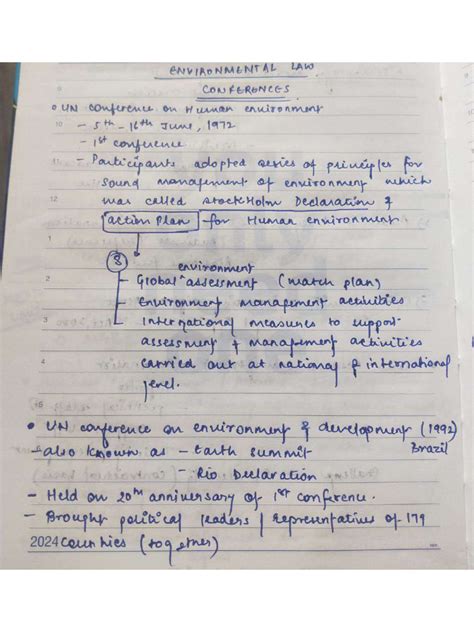 ENVIRONMENTAL LAW
CONFERENCES
UN conference on Human environment
- 5th - 16th June, 1972
- 1st conference
- Participants adopted series of principles for
sound management of environment which
was called stockHolm Declaration &
action Plan for Human environment
8
environment
- Global ^ assessment (watch plan)
- Environment management activities
- International measures to support
assessment & management activities
carried out at national & international
level.
• UN conference on environment & development (1992)
- also known as - Earth summit Brazil
- Rio Declaration
- Held on 20th anniversary of 1st conference.
- Brought political leaders / representatives of 179
2024 countries (together)